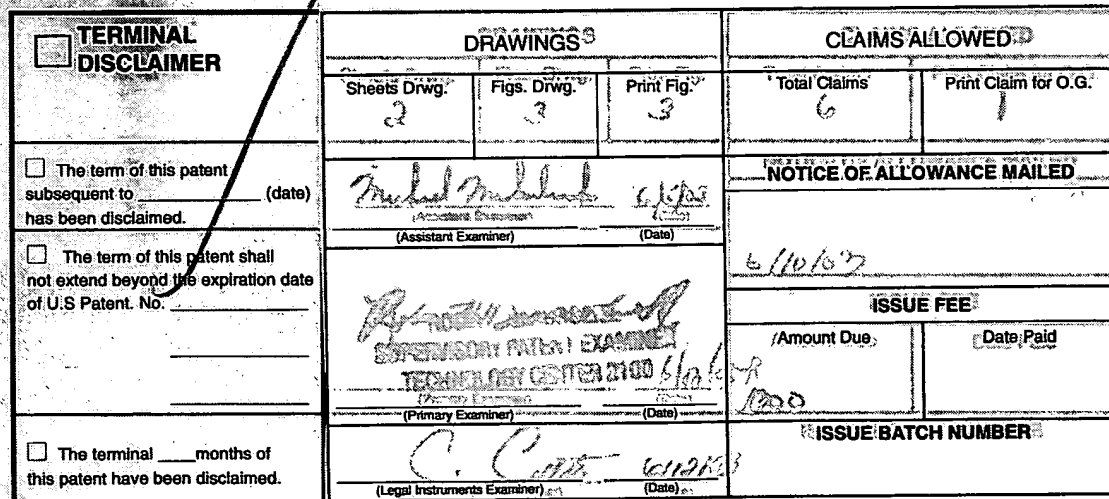 TERMINAL
DISCLAIMER
The term of this patent
subsequent to ____________ (date)
has been disclaimed.
The term of this patent shall
not extend beyond the expiration date
of U.S Patent. No. ____________
The terminal ____months of
this patent have been disclaimed.
DRAWINGS
Sheets Drwg. Figs. Drwg. Print Fig.
2 3 3
(Assistant Examiner) (Date)
SUPERVISORY PATENT EXAMINER
TECHNOLOGY CENTER 2100
(Primary Examiner) (Date)
C.
(Legal Instruments Examiner) (Date)
CLAIMS ALLOWED
Total Claims Print Claim for O.G.
6 1
NOTICE OF ALLOWANCE MAILED
6/10/03
ISSUE FEE
Amount Due Date Paid
1300
ISSUE BATCH NUMBER